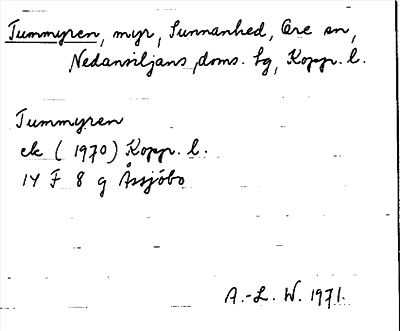 Tummyren, myr, Sunnanhed, Ore sn,
Nedansiljans doms. lg, Kopp. l.
Tummyren
ek (1970) Kopp. l.
14 F 8 g Åssjöbo
A.-L. W. 1971.